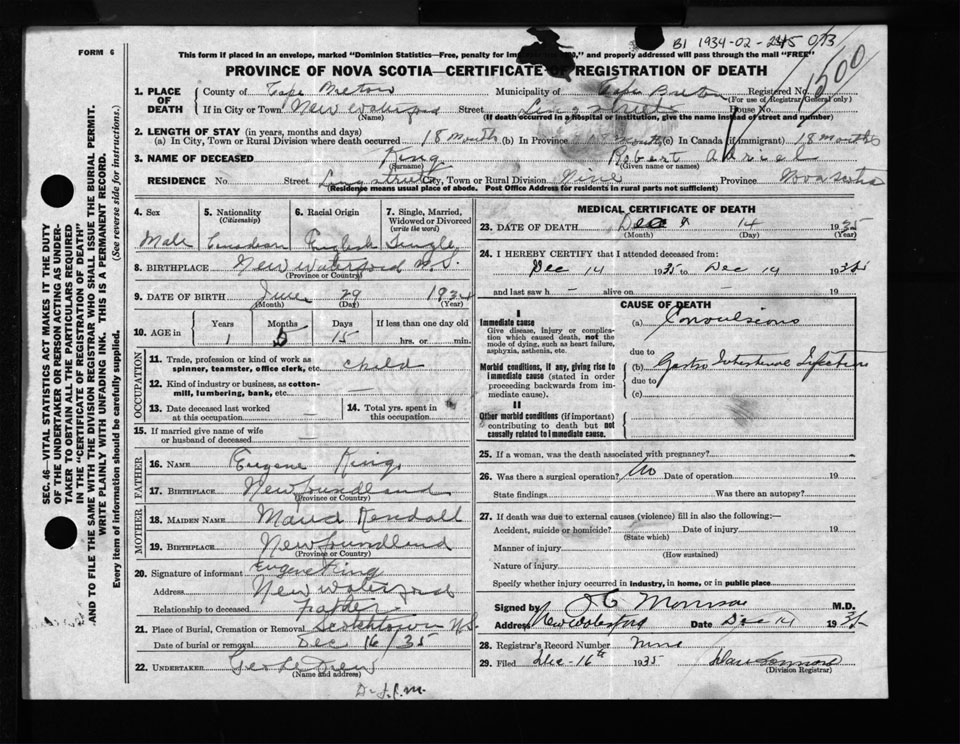 FORM 6
This form if placed in an envelope, marked "Dominion Statistics—Free, penalty for and properly addressed will pass through the mail "FREE"
B1 1934-02- 013
1500
PROVINCE OF NOVA SCOTIA—CERTIFICATE OF REGISTRATION OF DEATH
1. PLACE OF DEATH County of Cape Breton Municipality of Cape Breton Registered No.
(For use of Registrar General only)
If in City or Town New Waterford Street Ling street House No.
(Name) (If death occurred in a hospital or institution, give the name instead of street and number)
2. LENGTH OF STAY (in years, months and days)
(a) In City, Town or Rural Division where death occurred 18 month (b) In Province 18 months (c) In Canada (if immigrant) 18 months
3. NAME OF DECEASED King Robert
(Surname) (Given name or names)
RESIDENCE No. Street Ling street City, Town or Rural Division Province Nova Scotia
(Residence means usual place of abode. Post Office Address for residents in rural parts not sufficient)
4. Sex 5. Nationality (Citizenship) 6. Racial Origin 7. Single, Married, Widowed or Divorced (write the word)
Male Canadian English Single
8. BIRTHPLACE New Waterford N.S.
(Province or Country)
9. DATE OF BIRTH June 29 1934
(Month) (Day) (Year)
10. AGE in Years Months Days If less than one day old
1 5 15 hrs. or min.
OCCUPATION
11. Trade, profession or kind of work as spinner, teamster, office clerk, etc. child
12. Kind of industry or business, as cotton-mill, lumbering, bank, etc.
13. Date deceased last worked at this occupation 14. Total yrs. spent in this occupation
15. If married give name of wife or husband of deceased —
FATHER
16. NAME Eugene King
17. BIRTHPLACE Newfoundland
(Province or Country)
MOTHER
18. MAIDEN NAME Maud Kendall
19. BIRTHPLACE Newfoundland
(Province or Country)
20. Signature of informant Eugene King
Address New Waterford
Relationship to deceased Father
21. Place of Burial, Cremation or Removal Scotchtown N.S.
Date of burial or removal Dec 16/35
22. UNDERTAKER
(Name and address)
MEDICAL CERTIFICATE OF DEATH
23. DATE OF DEATH Dec 14 1935
(Month) (Day) (Year)
24. I HEREBY CERTIFY that I attended deceased from:
Dec 14 1935 to Dec 14 1935
and last saw h - alive on - 19
CAUSE OF DEATH
I
Immediate cause
Give disease, injury or complication which caused death, not the mode of dying, such as heart failure, asphyxia, asthenia, etc.
(a) Convulsions
due to
Morbid conditions, if any, giving rise to immediate cause (stated in order proceeding backwards from immediate cause).
(b) Gastro Intestinal Infection
due to
(c)
II
Other morbid conditions (if important) contributing to death but not causally related to immediate cause.
25. If a woman, was the death associated with pregnancy?
26. Was there a surgical operation? No Date of operation 19
State findings Was there an autopsy?
27. If death was due to external causes (violence) fill in also the following:—
Accident, suicide or homicide? Date of injury 19
(State which)
Manner of injury
(How sustained)
Nature of injury
Specify whether injury occurred in industry, in home, or in public place
Signed by Morrison M.D.
Address New Waterford Date Dec 14 1935
28. Registrar's Record Number
29. Filed Dec-16th 1935
(Division Registrar)
SEC. 46—VITAL STATISTICS ACT MAKES IT THE DUTY
OF THE UNDERTAKER OR PERSON ACTING AS UNDERTAKER TO OBTAIN ALL THE PARTICULARS REQUIRED
IN THE "CERTIFICATE OF REGISTRATION OF DEATH"
AND TO FILE THE SAME WITH THE DIVISION REGISTRAR WHO SHALL ISSUE THE BURIAL PERMIT.
WRITE PLAINLY WITH UNFADING INK. THIS IS A PERMANENT RECORD.
Every item of information should be carefully supplied. (See reverse side for instructions.)